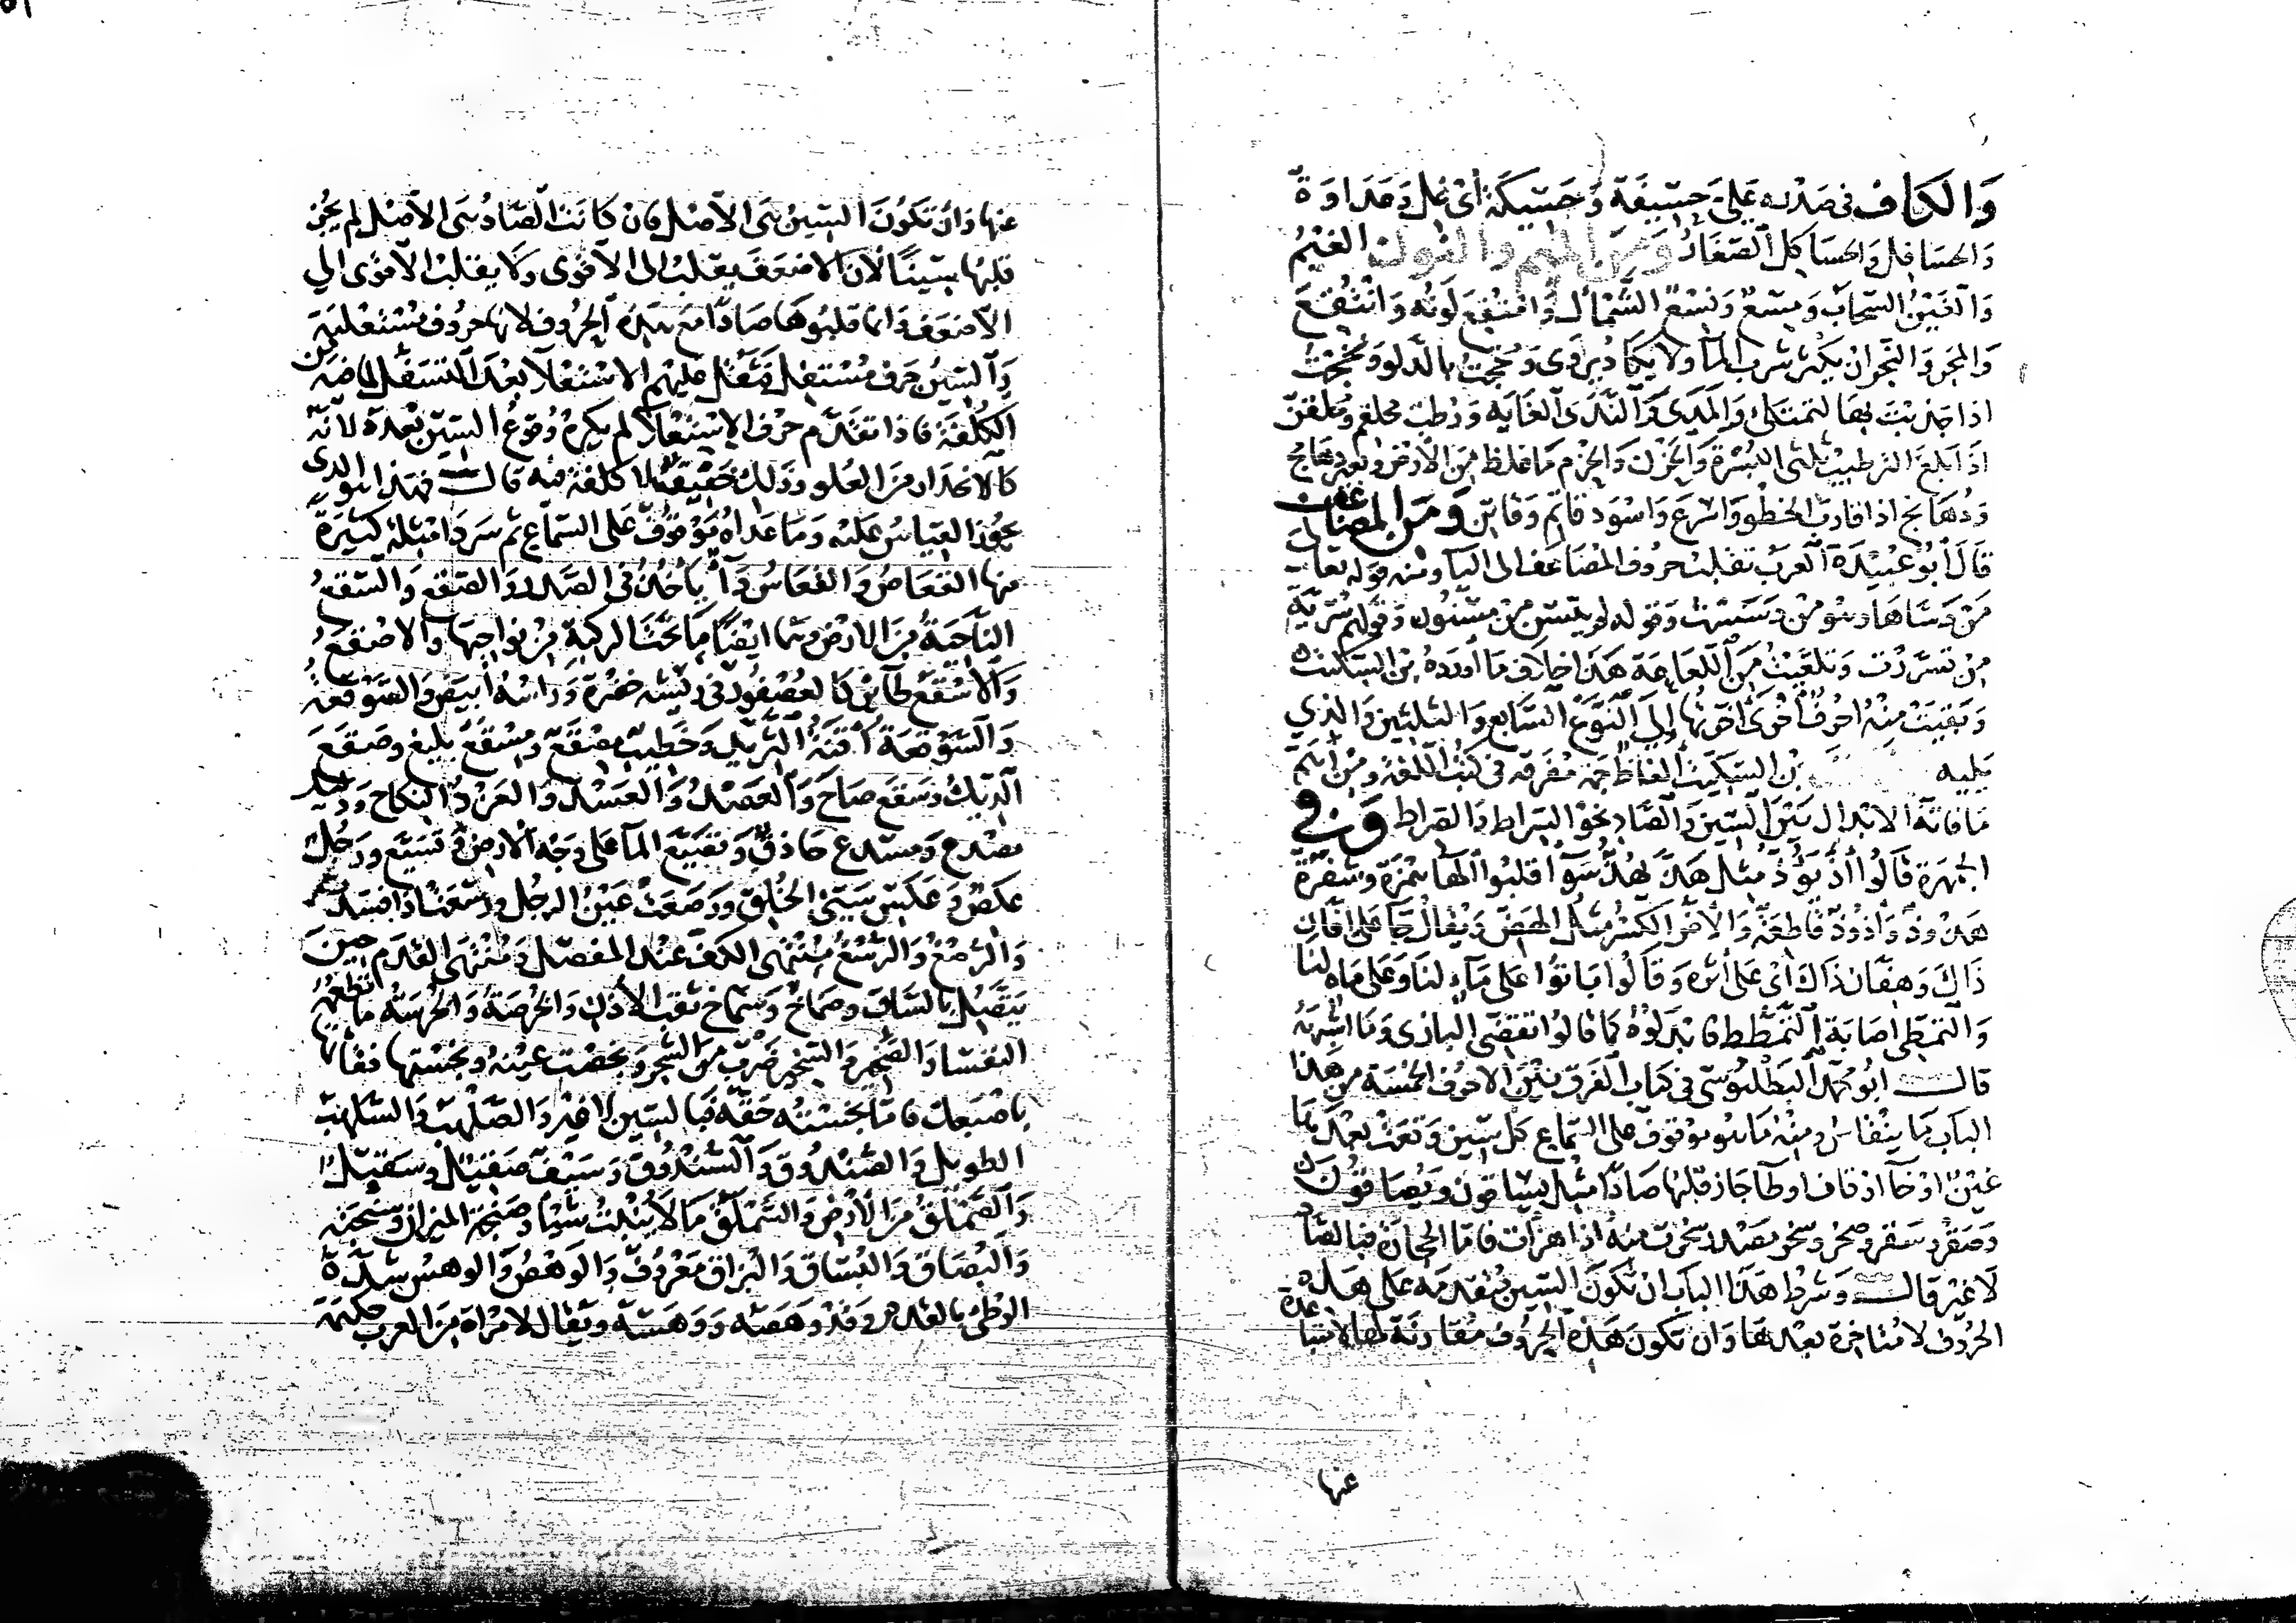 والكاف في صدره علي حسيفة وحسيكة أي غل وعداوة
والحسافل والحساكل الصغار ومن الميم والنون الغيم
والغين السحاب ومسع ونسع الشمال وامتقع لونه وانتقع
والمجر والنجر ان يكثر شرب الما ولا يكاد يروى ومخجت بالدلو ونخجت
اذا جذبت بها لتمتلئ والمدى والندى الغاية ورطب محلقم ومحلقن
اذا بلغ الترطيب ثلثي البسرة والحزن والحزم ما غلظ من الأرض وبعير دهامج
ودهانج اذا قارب الخطو واسرع واسود قاتم وقاتن ومن المضاعف
قال أبو عبيدة العرب تقلب حروف المضاعف الى اليا ومنه قوله تعالى
من دساها وهو من دسست وقوله لم يتسن من مسنون وقولهم سرية
من تسررت وتلعيت من اللعاعة هذا خلاف ما أورده بن السكيت
وبقيت منه احرف أخرى أخرتها إلى النوع السابع والثلثين والذي
يليه بن السكيت ألفاظ مفرقة في كتب اللغة ومن أهم
ما فاته الابدال بين السين والصاد نحو السراط والصراط وفي
الجمهرة قالوا أذ يؤذ مثل هذ يهذ سوآ قلبوا الهآ همزة وشفرة
هذوذ واذوذ قاطعة والاض الكسر مثل الهض ويقال جا على افان
ذاك وهفان ذاك أي على أثره وقالوا باتوا على مآء لنا وعلى ماه لنا
والتمطي اصابة التمطط فابدلوه كما قالوا تقضى البازي وما اشبهه
قال ابو محمد البطليوسى في كتاب الفرق بين الاحرف الخمسة من هذا
الباب ما ينقاس ومنه ما هو موقوف على السماع كل سين وقعت بعدها
عين او خآ او قاف او طآ جاز قلبها صادا مثل يساقون ويصاقون
وصقر وسقر وصخر وسخر مصدر سخرت منه اذا هزأت فاما الحجارة فبالصاد
لا غير قال وشرط هذا الباب ان تكون السين متقدمة على هذه
الحروف لا متاخرة بعدها وان تكون هذه الحروف مقاربة لها لا متباعدة
عنها
عنها وان تكون السين هى الأصل فان كانت الصاد هى الأصل لم يجز
قلبها سينا لان الاضعف يقلب الى الأقوى ولا يقلب الأقوى الى
الأضعف وانما قلبوها صادا مع هذه الحروف لانها حروف مستعلية
والسين حرف مستفل فثقل عليهم الاستعلآ بعد التسفل لما فيه من
الكلفة فاذا تقدم حرف الاستعلا لم يكره وقوع السين بعده لانه
كالانحدار من العلو وذلك خفيف لا كلفة فيه قال فهذا هو الذى
يجوز القياس عليه وما عداه موقوف على السماع ثم سرد امثلة كثيرة
منها القعاص والقعاس دآ يأخذ في الصدر والصقع والسقع
الناحية من الارض وهما ايضا ما تحت الركية من نواحيها والاصقع
والأسقع طآئر كالعصفور في ريشه خضرة وراسه أبيض والصوقعة
والسوقعة وقبة الثريد وخطيب مصقع ومسقع بليغ وصقع
الديك وسقع صاح والعصد والعسد والعزد النكاح ودليل
مصدع ومسدع حاذق وتصيع المآ على وجه الارض وتسيع ورجل
عكص وعكس سيئ الخلق ورصعت عين الرجل ورسعت اذا فسدت
والرصغ والرسغ منتهى الكف عند المفصل ومنتهى القدم حين
يتصل بالساق وصماخ وسماخ ثقب الأذن والخرصة والخرسة ما تطعمه
النفسا والصخبر والسخبر ضرب من الشجر وبخصت عينه وبخستها فقأتها
باصبعك فاما بخسته حقه فبالسين لا غير والصلهب والسلهب
الطويل والصندوق والسندوق وسيف صقيل وسقيل
والصملق من الأرض والسملق ما لا ينبت شيأ وصنجة الميزان وسنجته
والبصاق والبساق والبزاق معروف والوهص والوهس شدة
الوطئ بالقدم وقد وهصه ووهسه ويقال لامراة من العرب حكيمة